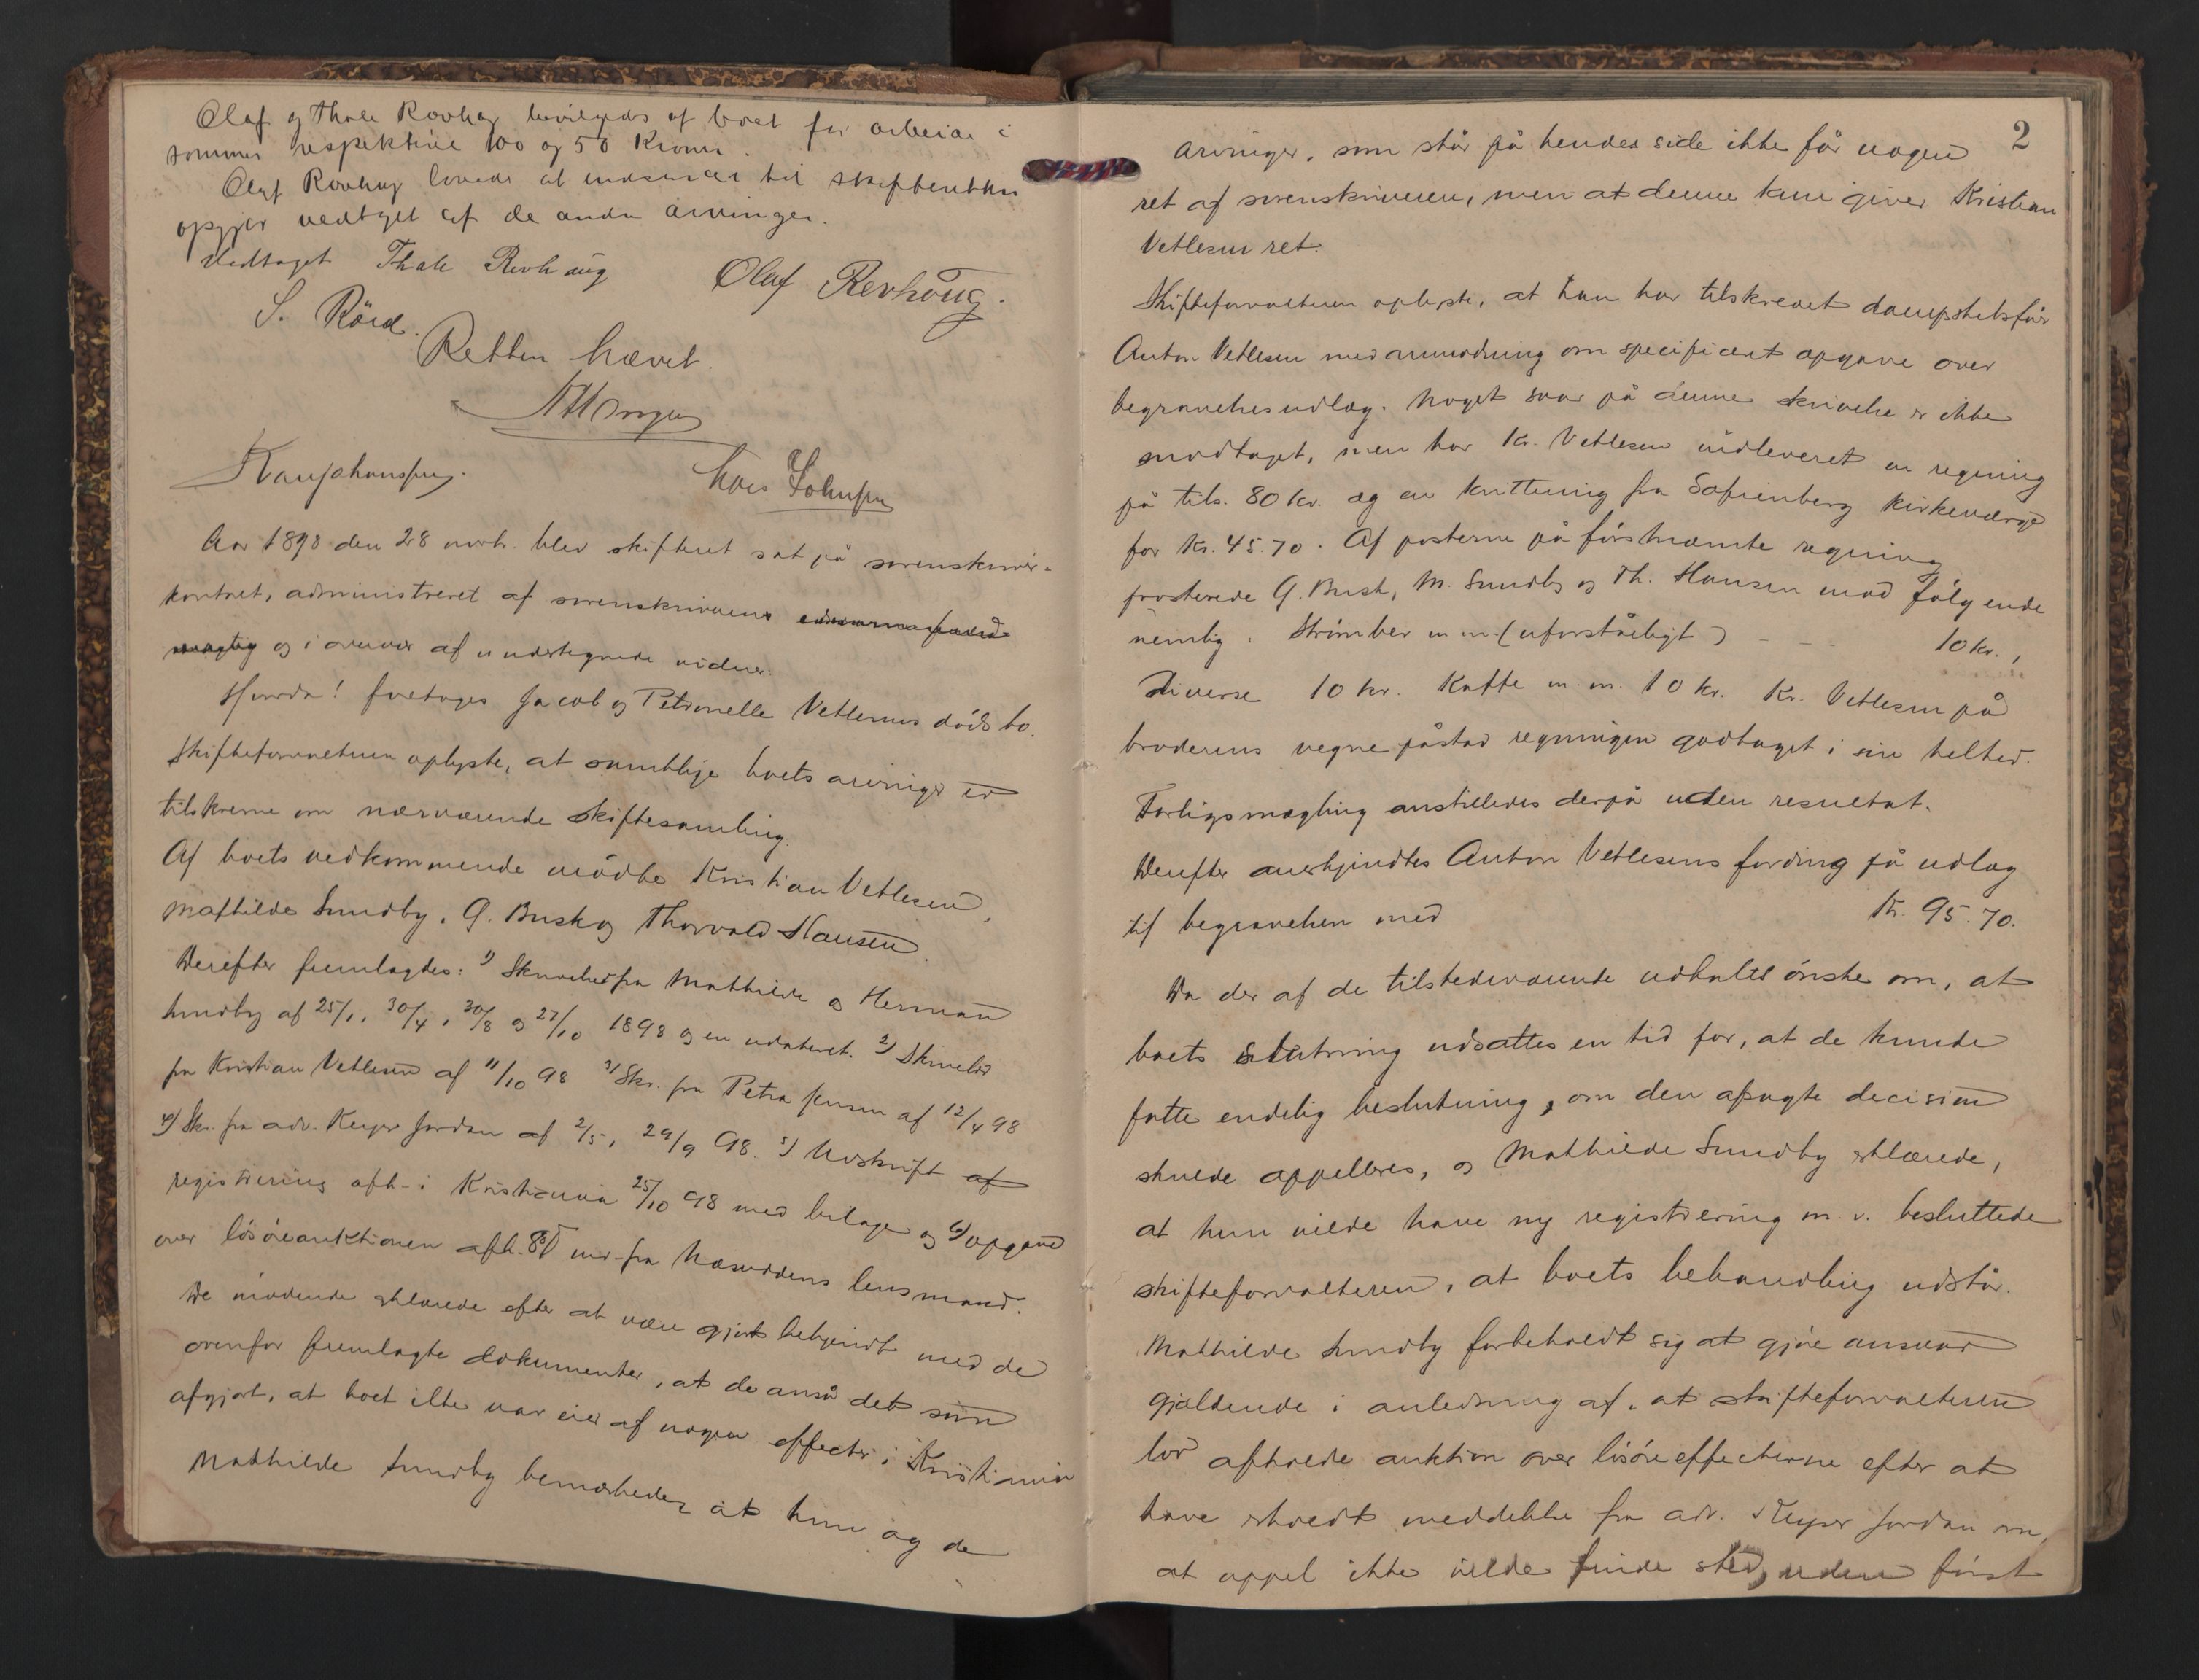 Olaf og Thale Rovhaug bevilgedes af boet for arbeide i
sommer respektive 100 og 50 Kroner.
Olaf Rovhaug lovede at indsende til skifteretten
opgjør vedtaget af de andre arvinger.
Vedtaget Thale Revhaug Olaf Revhaug.
S. Röed.
Retten hævet.
Hans Johnsen
Aar 1898 den 28 novb. blev skifteret sat på sorenskriver-
kontoret, administreret af sorenskriverens
og i overvær af undertegnede vidner.
Hvorda! foretoges Jacob og Petronelle Vetlesens dödsbo.
Skifteforvalteren oplyste, at samtlige boets arvinger er
tilskrevne om nærværende skiftesamling.
Af boets vedkommende mödte Kristian Vetlesen,
Mathilde Sundby, G. Busk og Thorvald Hansen.
Derefter fremlagdes: 1) Skrivelser fra Mathilde og Herman
Sundby af 25/1, 30/4, 30/8 og 27/10 1898 og en udateret. 2) Skrivelse
fra Kristian Vetlesen af 11/10 98 3) Skr. fra Petra Jensen af 12/4 98
4) Skr. fra adv. Keyser Jordan af 2/5, 29/9 98. 5) Udskrift af
registrering afh. i Kristiania 25/10 98 med bilage og 6) opgave
over lösöreauktionen afh. fra Næsoddens lensmand.
De mødende erklærede efter at være gjort bekjendt med de
ovenfor fremlagte dokumenter, at de anså det som
afgjort, at boet ikke var eier af nogen effecter i Kristiania
Mathilde Sundby bemærkede, at hun og de
2
arvinger, som står på hendes side ikke får nogen
ret af sorenskriveren, men at denne kun giver Kristian
Vetlesen ret.
Skifteforvalteren oplyste, at han har tilskrevet dampskibsfører
Anton Vetlesen med anmodning om specificeret opgave over
begravelsesudlæg. Noget svar på denne skrivelse er ikke
modtaget, men har Kr. Vetlesen indleveret en regning
på tils. 80 kr. og en kvittering fra Sofienberg kirkeværge
for Kr. 45.70. Af posterne på förstnævnte regning
protesterede G. Busk, M. Sundby og Th. Hansen mod følgende
nemlig: m m (uforståeligt) - - 10 kr.,
Diverse 10 kr. Kaffe m. m. 10 kr. Kr. Vetlesen på
broderens vegne påstod regningen godtaget i sin helhed.
Forligsmægling anstilledes derpå uden resultat.
Derefter anerkjendtes Anton Vetlesens fordring på udlæg
til begravelsen med Kr. 95.70.
Da der af de tilstedeværende udtaltes önske om, at
boets slutning udsattes en tid for, at de kunde
fatte endelig beslutning, om den afsagte decision
skulde appelleres, og Mathilde Sundby erklærede,
at hun vilde have ny registrering m. v. besluttede
skifteforvalteren, at boets behandling udstår.
Mathilde Sundby forbeholdt sig at gjøre ansvar
gjældende i anledning af, at skifteforvalteren
lod afholde auktion over lösöreeffecterne efter at
have erholdt meddelelse fra adv. Keyser Jordan om,
at appel ikke vilde finde sted, uden først